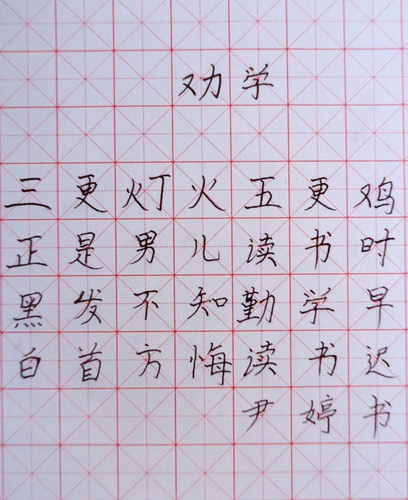 劝学
三更灯火五更鸡
正是男儿读书时
黑发不知勤学早
白首方悔读书迟
尹婷书